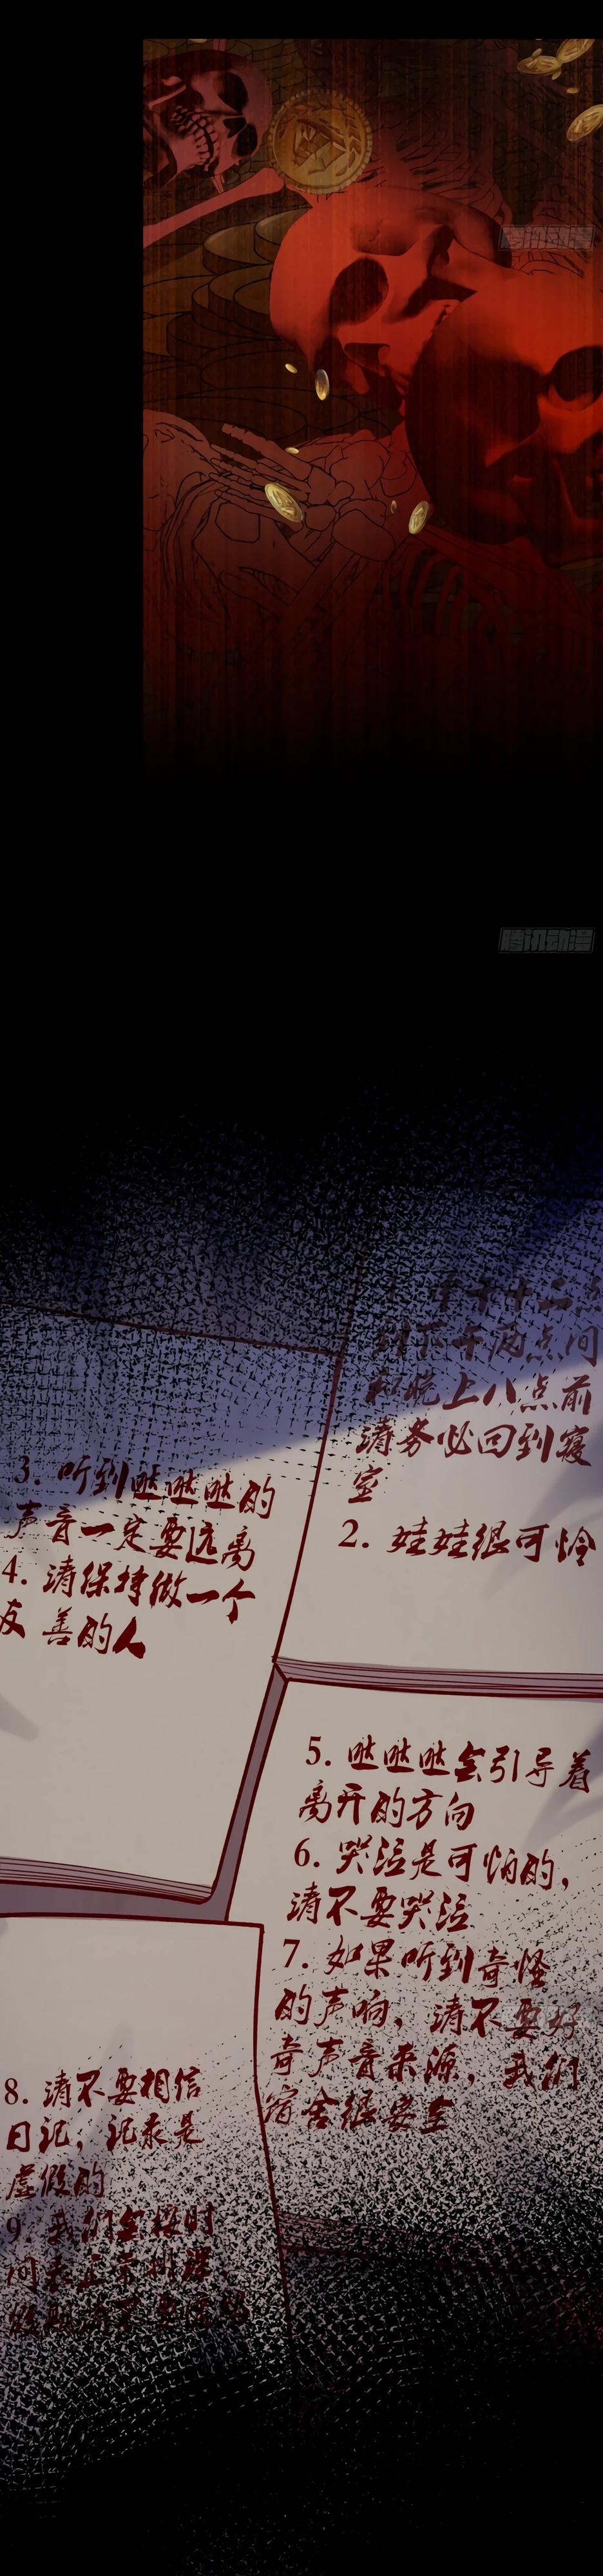 腾讯动漫
腾讯动漫
中午十二点
到下午两点间
和晚上八点前
请务必回到寝
室
2. 娃娃很可怜
3. 听到哒哒哒的
声音一定要远离
4. 请保持做一个
友善的人
5. 哒哒哒会引导着
离开的方向
6. 哭泣是可怕的，
请不要哭泣
7. 如果听到奇怪
的声响，请不要好
奇声音来源，我们
宿舍很安全
8. 请不要相信
日记，记录是
虚假的
9. 我们会按时
间表正常